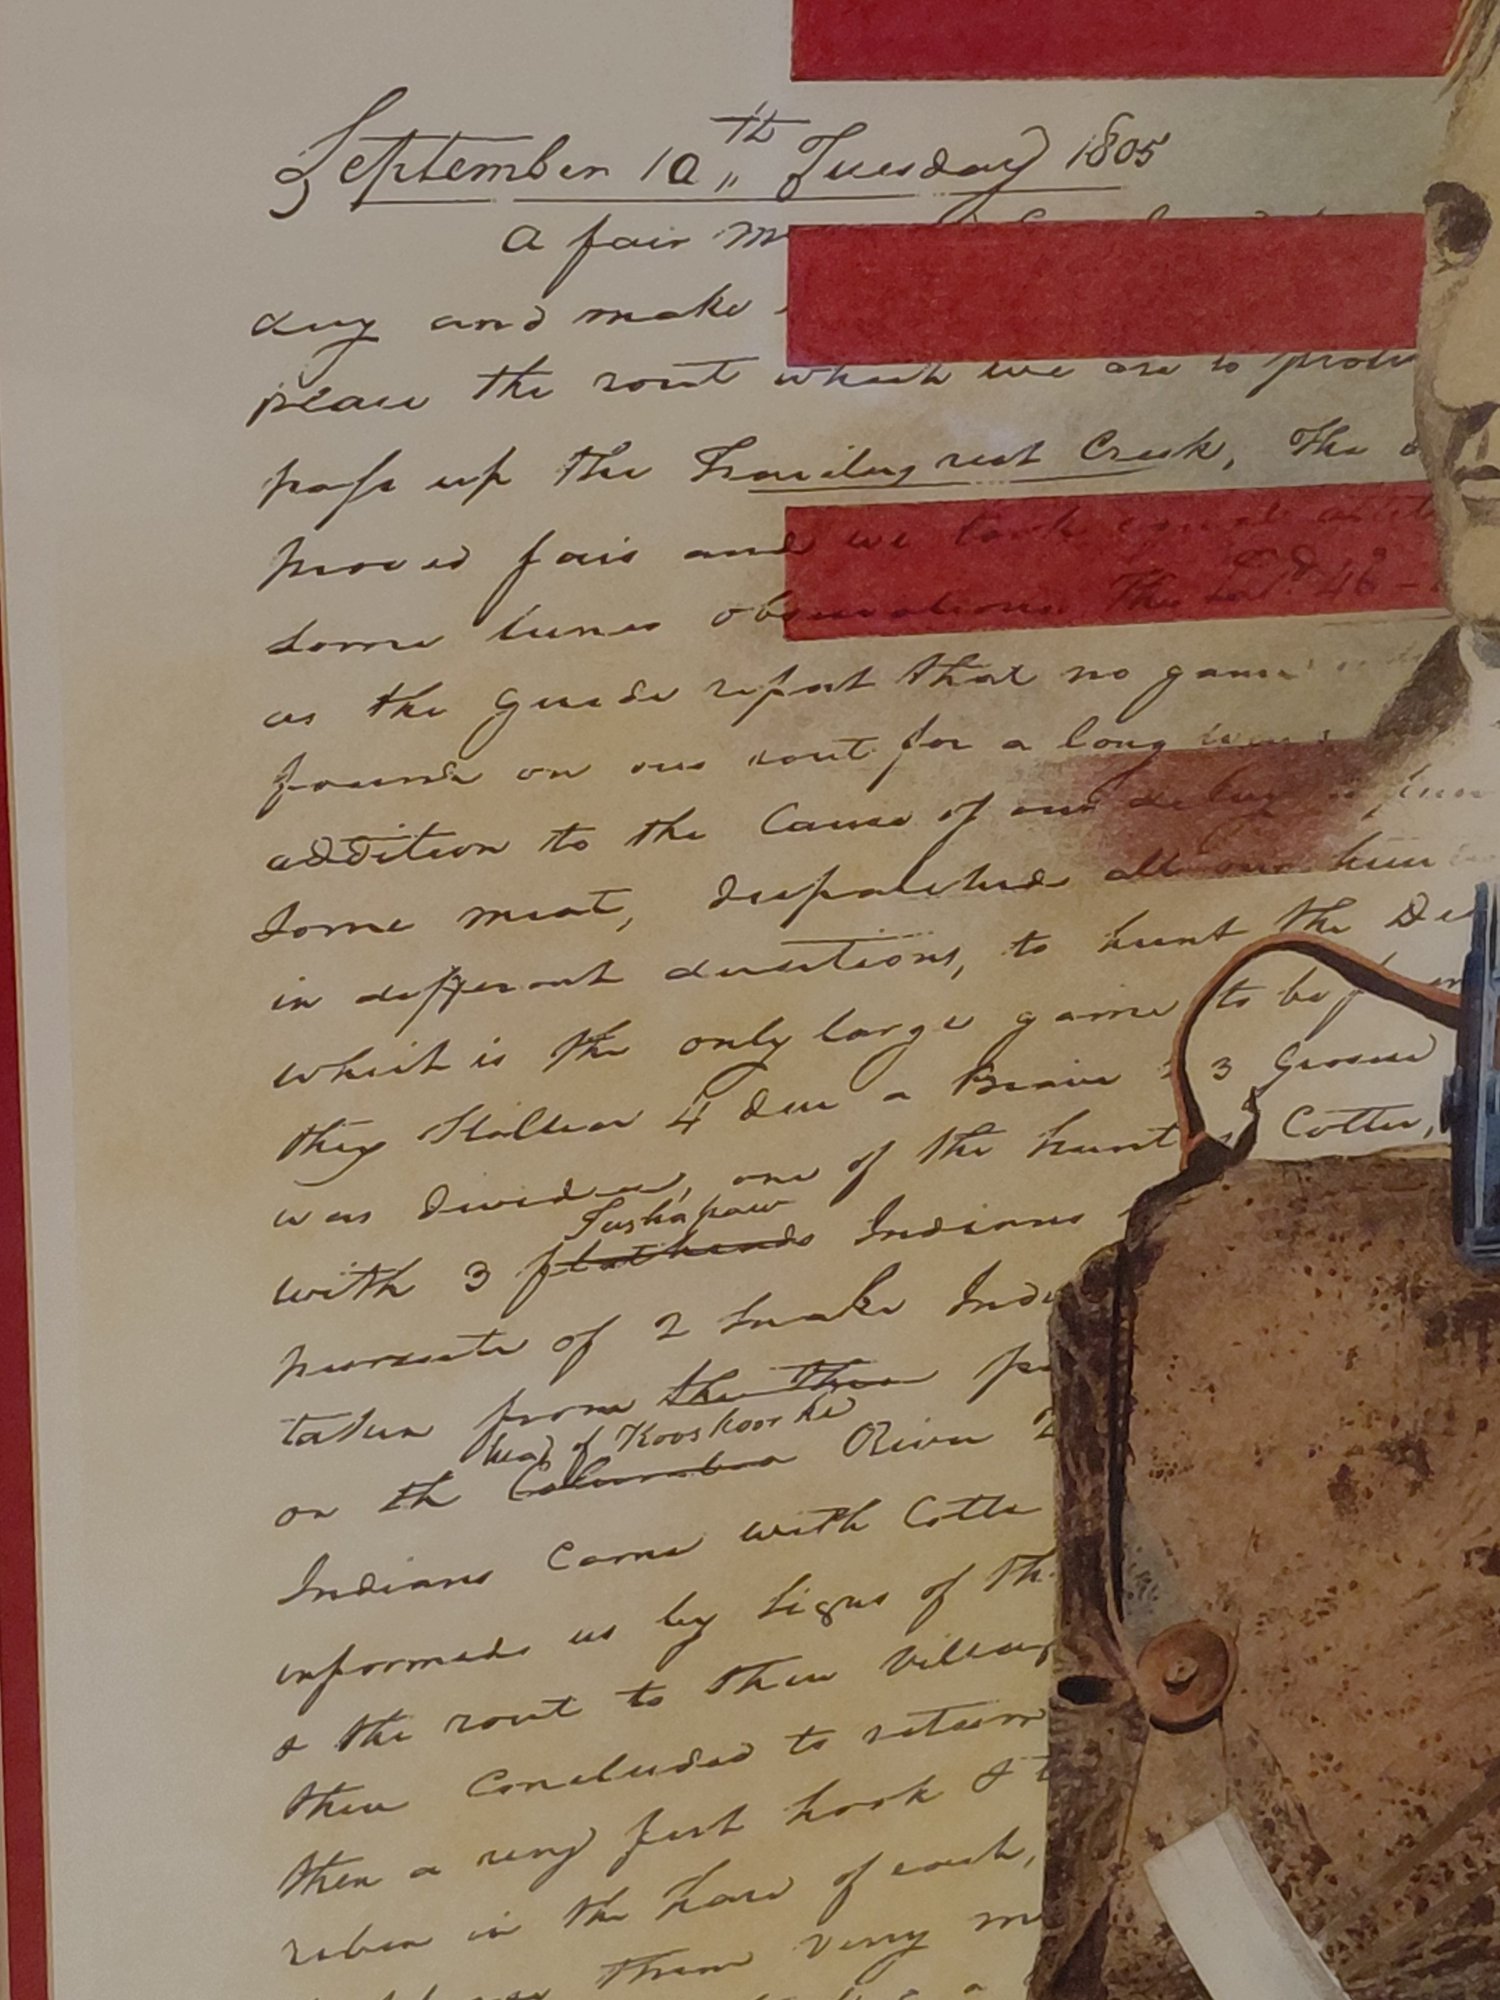 September 10th,, Tuesday 1805
A fair
day and make
please the rout which we are to
pass up the Traviling rest Creek, The
proved fair and we took equal
some luner observations The Latd. 46
as the guide report that no game
found on our rout for a long
addition to the Cause of our delay
Some meat, despatched all our
in different directions, to hunt the
which is the only large game to be
they Killed 4 deer a Beaver & 3 Grouse
was divided, one of the Cotter,
Tushapaw
with 3 flatheads Indians
pursute of 2 Snake
taken from
head of Kooskooske
on the Columbia River
Indians Came with
informed us by Signs of
& the rout to their
then Concluded to
then a ring fish hook &
reben in the hare of each,
them very